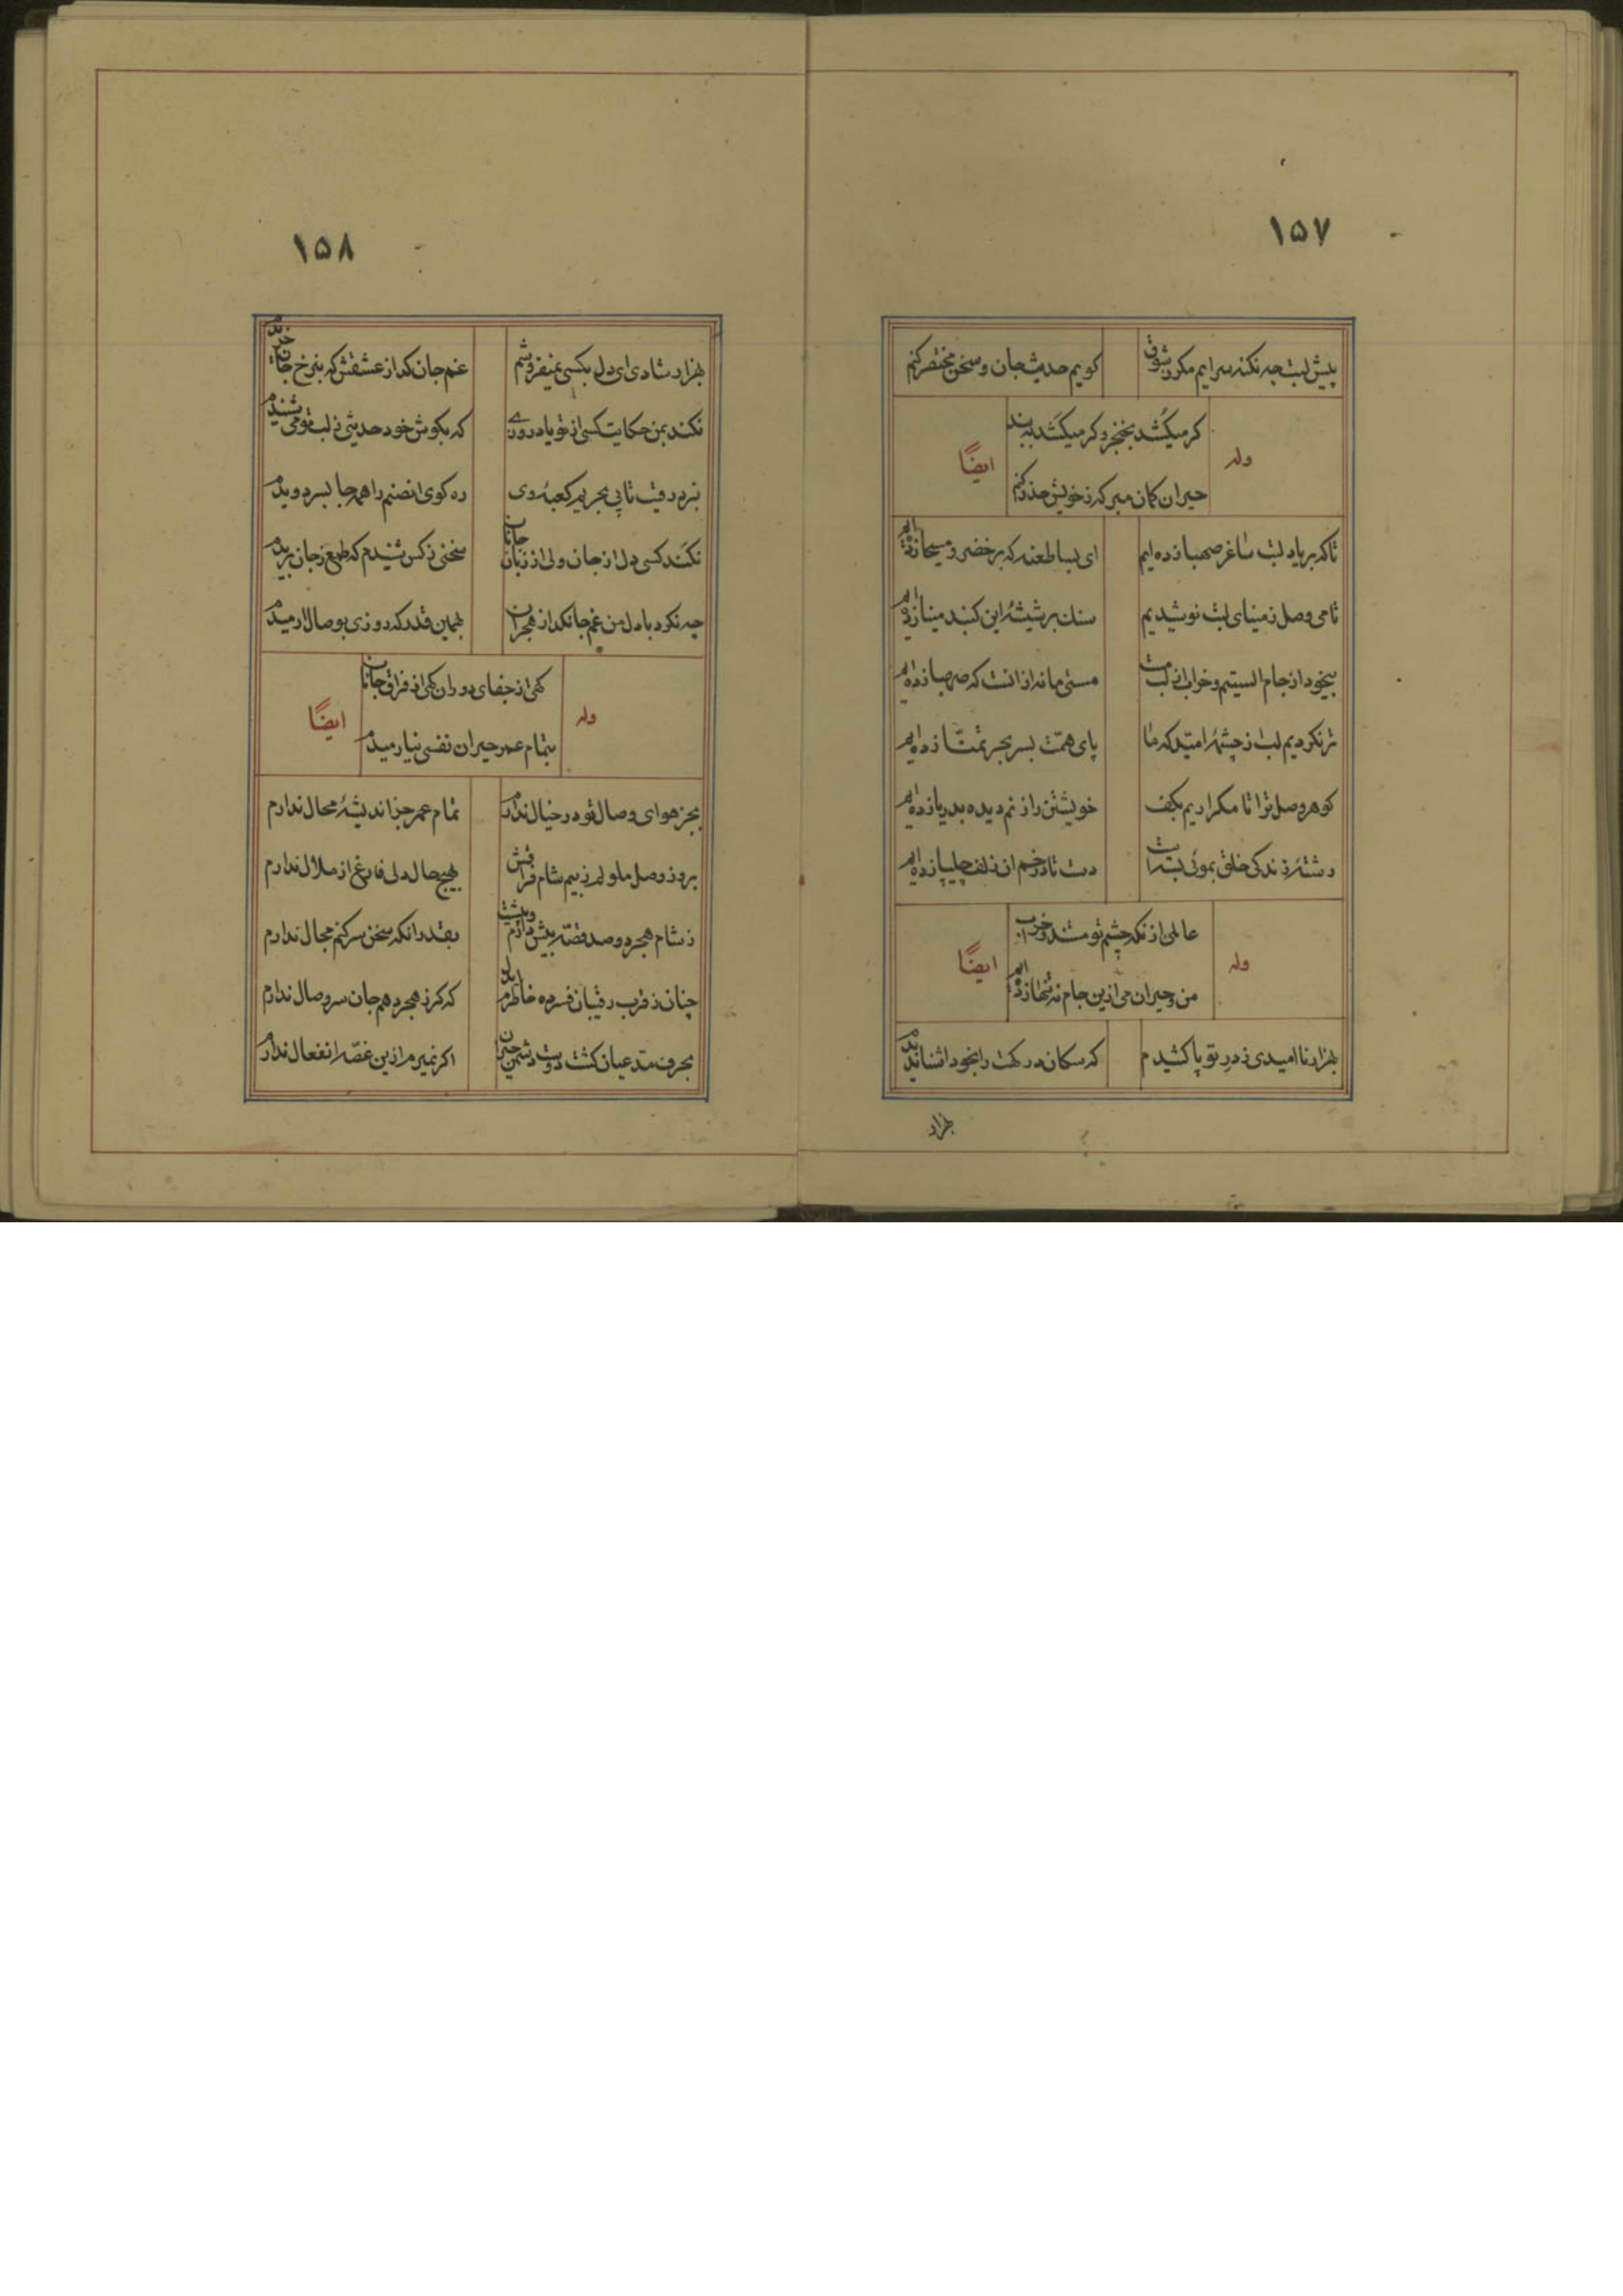 ۱۵۷
پیش لبت چه نکته سرایم مکر ز شوق
کویم حدیث جان و سخن مختصر کنم
وله
کر میکُشد بخنجر و کر میکَشد به بند
ایضاً
حیران کمان مبر که ز خویش حذر کنم
تا که بر یاد لبت ساغر صهبا زده‌ایم
ای بسا طعنه که بر خضر و مسیحا زده‌ایم
تا می وصل ز مینای لبت نوشیدیم
سنك بر شیشهٔ این کنبد مینا زده‌ایم
بیخود از جام الستیم و خراب از لب مست
مستی ما نه از انست که صهبا زده‌ایم
تر نکردیم لب از چشمهٔ امیّد که ما
پای همّت بسر بحر تمنّا زده‌ایم
کوهر وصل ترا تا مکر اریم بکف
خویشتن را ز نم دیده بدریا زده‌ایم
رشتهٔ زندکی خلق بموئی بسته است
دست تا در خم ان زلف چلیپا زده‌ایم
وله
عالمی از نکه چشم تو مستند و خراب
ایضاً
من و حیران می ازین جام نه تنها زده‌ایم
هزار نا امیدی ز در تو پا کشیدم
که سکان درکهت را بخود اشنا ندیدم
هزار
۱۵۸
هزار شادی ای دل بکسی نمیفروشم
غم جان کداز عشقش که بنرخ جان خریدم
نکند بمن حکایت کسی از تو یا درودی
که بکوش خود حدیثی ز لب تو می شنیدم
نبرد رقیب تا پی بحریم کعبهٔ وی
ره کوی انصنم را همه جا بسر دویدم
نکَند کسی دل از جان ولی از زبان جانان
سخنی ز کس شنیدم که طمع ز جان بریدم
چه نکرد با دل من غم جانکداز هجران
بهمین قدر که روزی بوصال ارمیدم
وله
کهی از جفای دوران کهی از فراق جانان
ایضاً
بتمام عمر حیران نفسی نیارمیدم
بجز هوای وصال تو در خیال ندارم
تمام عمر جز اندیشهٔ محال ندارم
بروز وصل ملولم ز بیم شام فراقش
بهیچ حال دلی فارغ از ملال ندارم
ز شام هجر دو صد قصّه بیش دارم و پیشت
بقدر انکه سخن سر کنم مجال ندارم
چنان ز قرب رقیبان فسرده خاطرم ایدل
که کر ز هجر دهم جان سر وصال ندارم
بحرف مدّعیان کشت دوست دشمن حیران
اکر نمیرم ازین غصّه انفعال ندارم